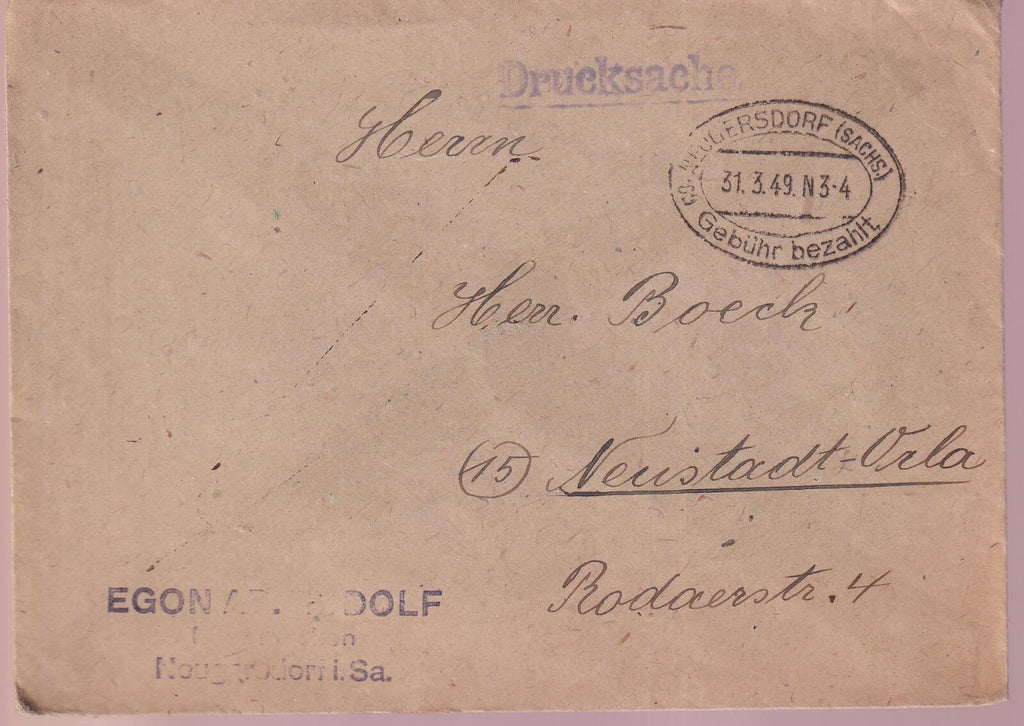 Drucksache
Herrn
NEUGERSDORF (SACHS)
31.3.49.N3-4
Gebühr bezahlt
Herr. Boeck
(15) Neustadt-Orla
Rodaerstr. 4
EGON
i. Sa.